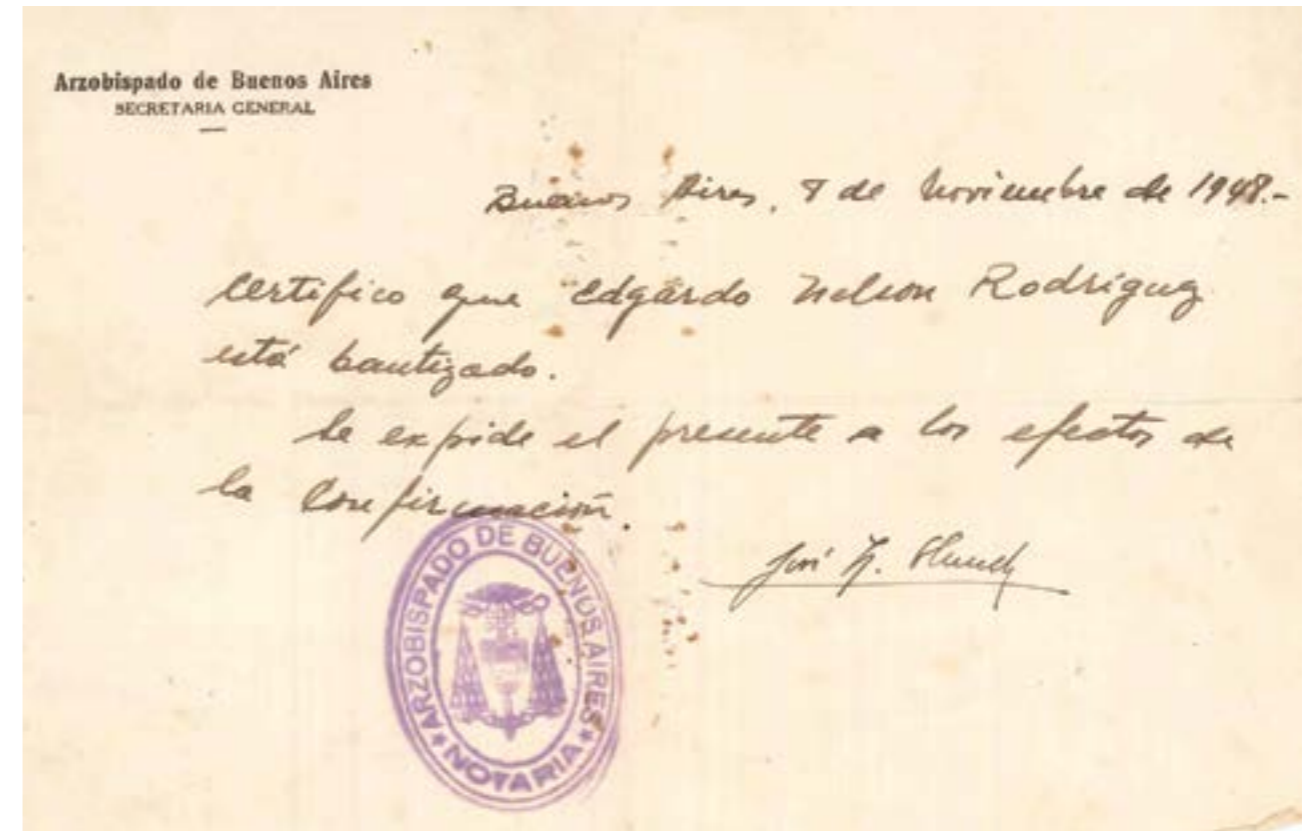 Arzobispado de Buenos Aires
SECRETARIA GENERAL
Buenos Aires, 8 de Noviembre de 1948.-
Certifico que Edgardo Nelson Rodríguez
está bautizado.
Se expide el presente a los efectos de
la Confirmación.
José
ARZOBISPADO DE BUENOS AIRES
NOTARIA